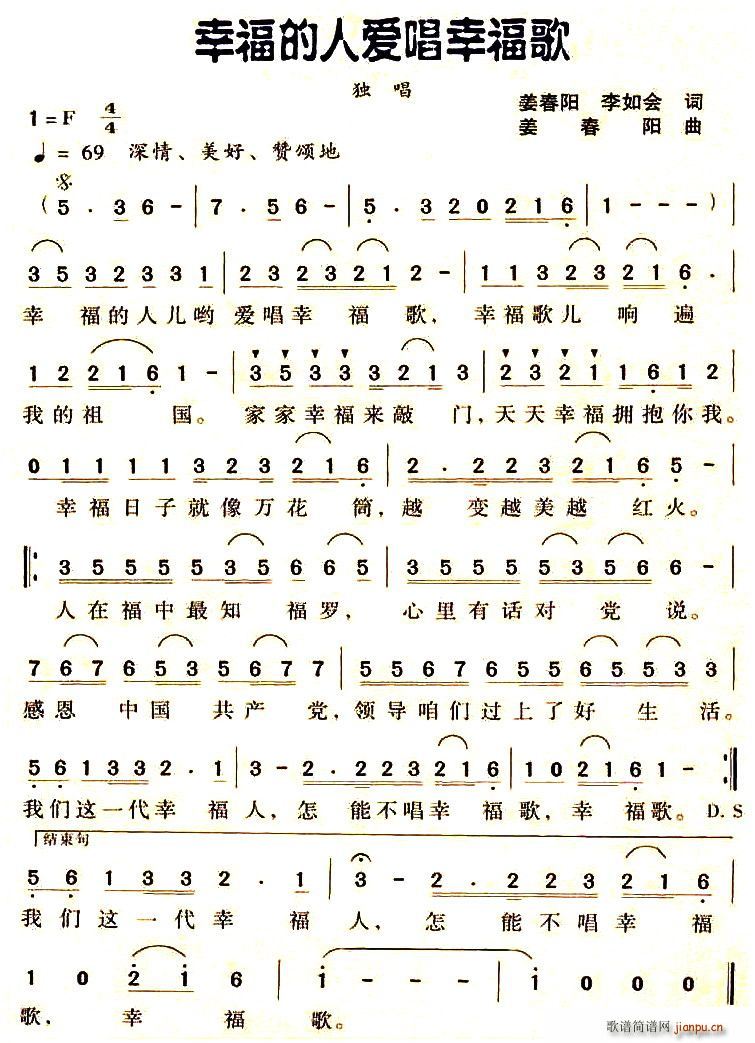 幸福的人爱唱幸福歌
独 唱
1=F 4/4
姜春阳 李如会 词
姜 春 阳 曲
♩= 69 深情、美好、赞颂地
𝄋
( 5 · 3 6 - | 7 · 5 6 - | 5 · 3 2 0 2 1 6 | 1 - - - ) |
3 5 3 2 3 2 3 3 1 | 2 3 2 3 2 3 2 1 2 - | 1 1 3 2 3 2 3 2 1 6 · |
幸 福的人儿哟 爱唱幸 福 歌, 幸福歌儿 响 遍
1 2 2 2 1 6 1 - | 3 5 3 3 3 2 1 3 | 2 3 2 1 1 6 1 2 |
我的祖 国。 家家幸福来敲 门,天天幸福拥抱你我。
0 1 1 1 1 3 2 3 2 1 6 | 2 · 2 2 2 3 2 1 6 5 - |
幸福日子就像万花 筒,越 变越美越 红火。
𝄆 3 5 5 5 5 3 5 6 6 5 | 3 5 5 5 3 5 3 5 6 6 - |
人在福中最知 福罗, 心里有话对 党 说。
7 6 7 6 5 3 5 6 7 | 5 5 6 7 6 5 5 6 5 5 3 3 |
感恩 中国 共产 党,领导咱们过上了好 生 活。
5 6 1 3 3 2 · 1 | 3 - 2 · 2 2 3 2 1 6 | 1 0 2 1 6 1 - 𝄇
我们这一代幸 福人,怎 能不唱幸 福歌,幸 福歌。D.S
结束句
5 6 1 3 3 2 · 1 | 3 - 2 · 2 2 3 2 1 6 |
我们这一代幸 福 人, 怎 能不唱幸 福
1 0 2 1 6 | i - - - | i 0 0 0 ‖
歌, 幸 福 歌。
歌谱简谱网
jianpu.cn